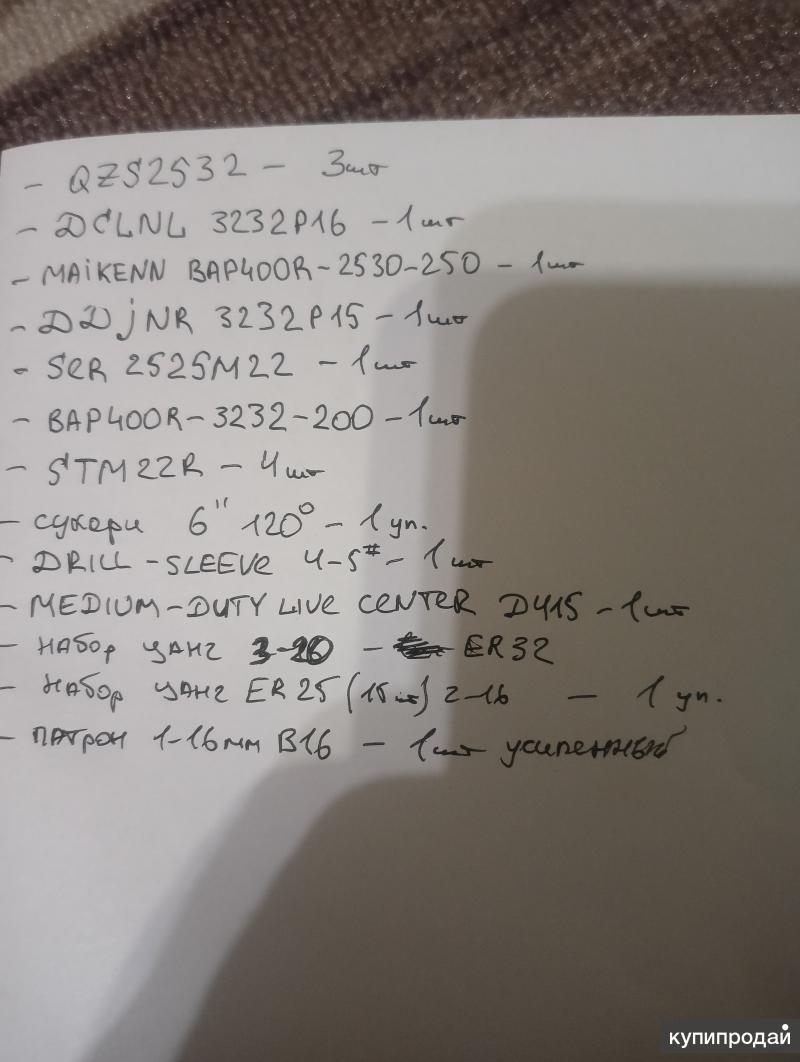 - QZS2532 - 3шт
- DCLNL 3232P16 - 1шт
- MAiKENN BAP400R-2530-250 - 1шт
- DDjNR 3232P15 - 1шт
- SER 2525M22 - 1шт
- BAP400R-3232-200 - 1шт
- STM22R - 4шт
- сухари 6" 120° - 1уп.
- DRILL-SLEEVE 4-5# - 1шт
- MEDIUM-DUTY LIVE CENTER D415 - 1шт
- НАБОР ЦАНГ 3-20 - ER32
- НАБОР ЦАНГ ER25 (15шт) 2-16 - 1уп.
- ПАТРОН 1-16мм B16 - 1шт усиленный
купипродай